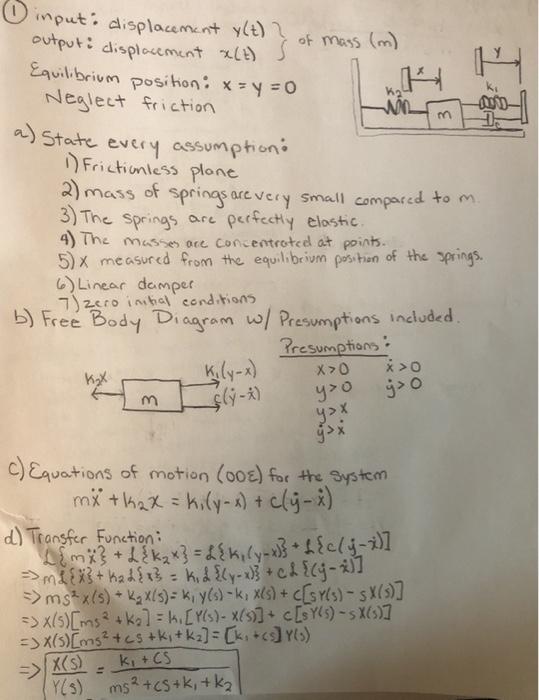 ① input: displacement y(t) } of mass (m)
output: displacement x(t)
Equilibrium position: x = y = 0
Neglect friction
x
y
K₂
K₁
m
c
a) State every assumption:
1) Frictionless plane
2) mass of springs are very small compared to m.
3) The springs are perfectly elastic.
4) The masses are concentrated at points.
5) X measured from the equilibrium position of the springs.
6) Linear damper
7) zero initial conditions
b) Free Body Diagram w/ Presumptions included.
Presumptions:
K₂X
m
K₁(y-x)
c(ẏ-ẋ)
x>0 ẋ>0
y>0 ẏ>0
y>x
ẏ>ẋ
c) Equations of motion (ODE) for the system
mẍ + k₂x = k₁(y-x) + c(ẏ-ẋ)
d) Transfer Function:
ℒ{mẍ} + ℒ{k₂x} = ℒ{k₁(y-x)} + ℒ{c(ẏ-ẋ)]
=> mℒ{ẍ} + k₂ℒ{x} = k₁ℒ{(y-x)} + cℒ{(ẏ-ẋ)]
=> ms²x(s) + k₂x(s) = k₁y(s) - k₁x(s) + c[sY(s) - sX(s)]
=> x(s)[ms² + k₂] = k₁[Y(s) - X(s)] + c[sY(s) - sX(s)]
=> X(s)[ms² + cs + k₁ + k₂] = [k₁ + cs] Y(s)
=> X(s)/Y(s) = k₁ + cs / ms² + cs + k₁ + k₂